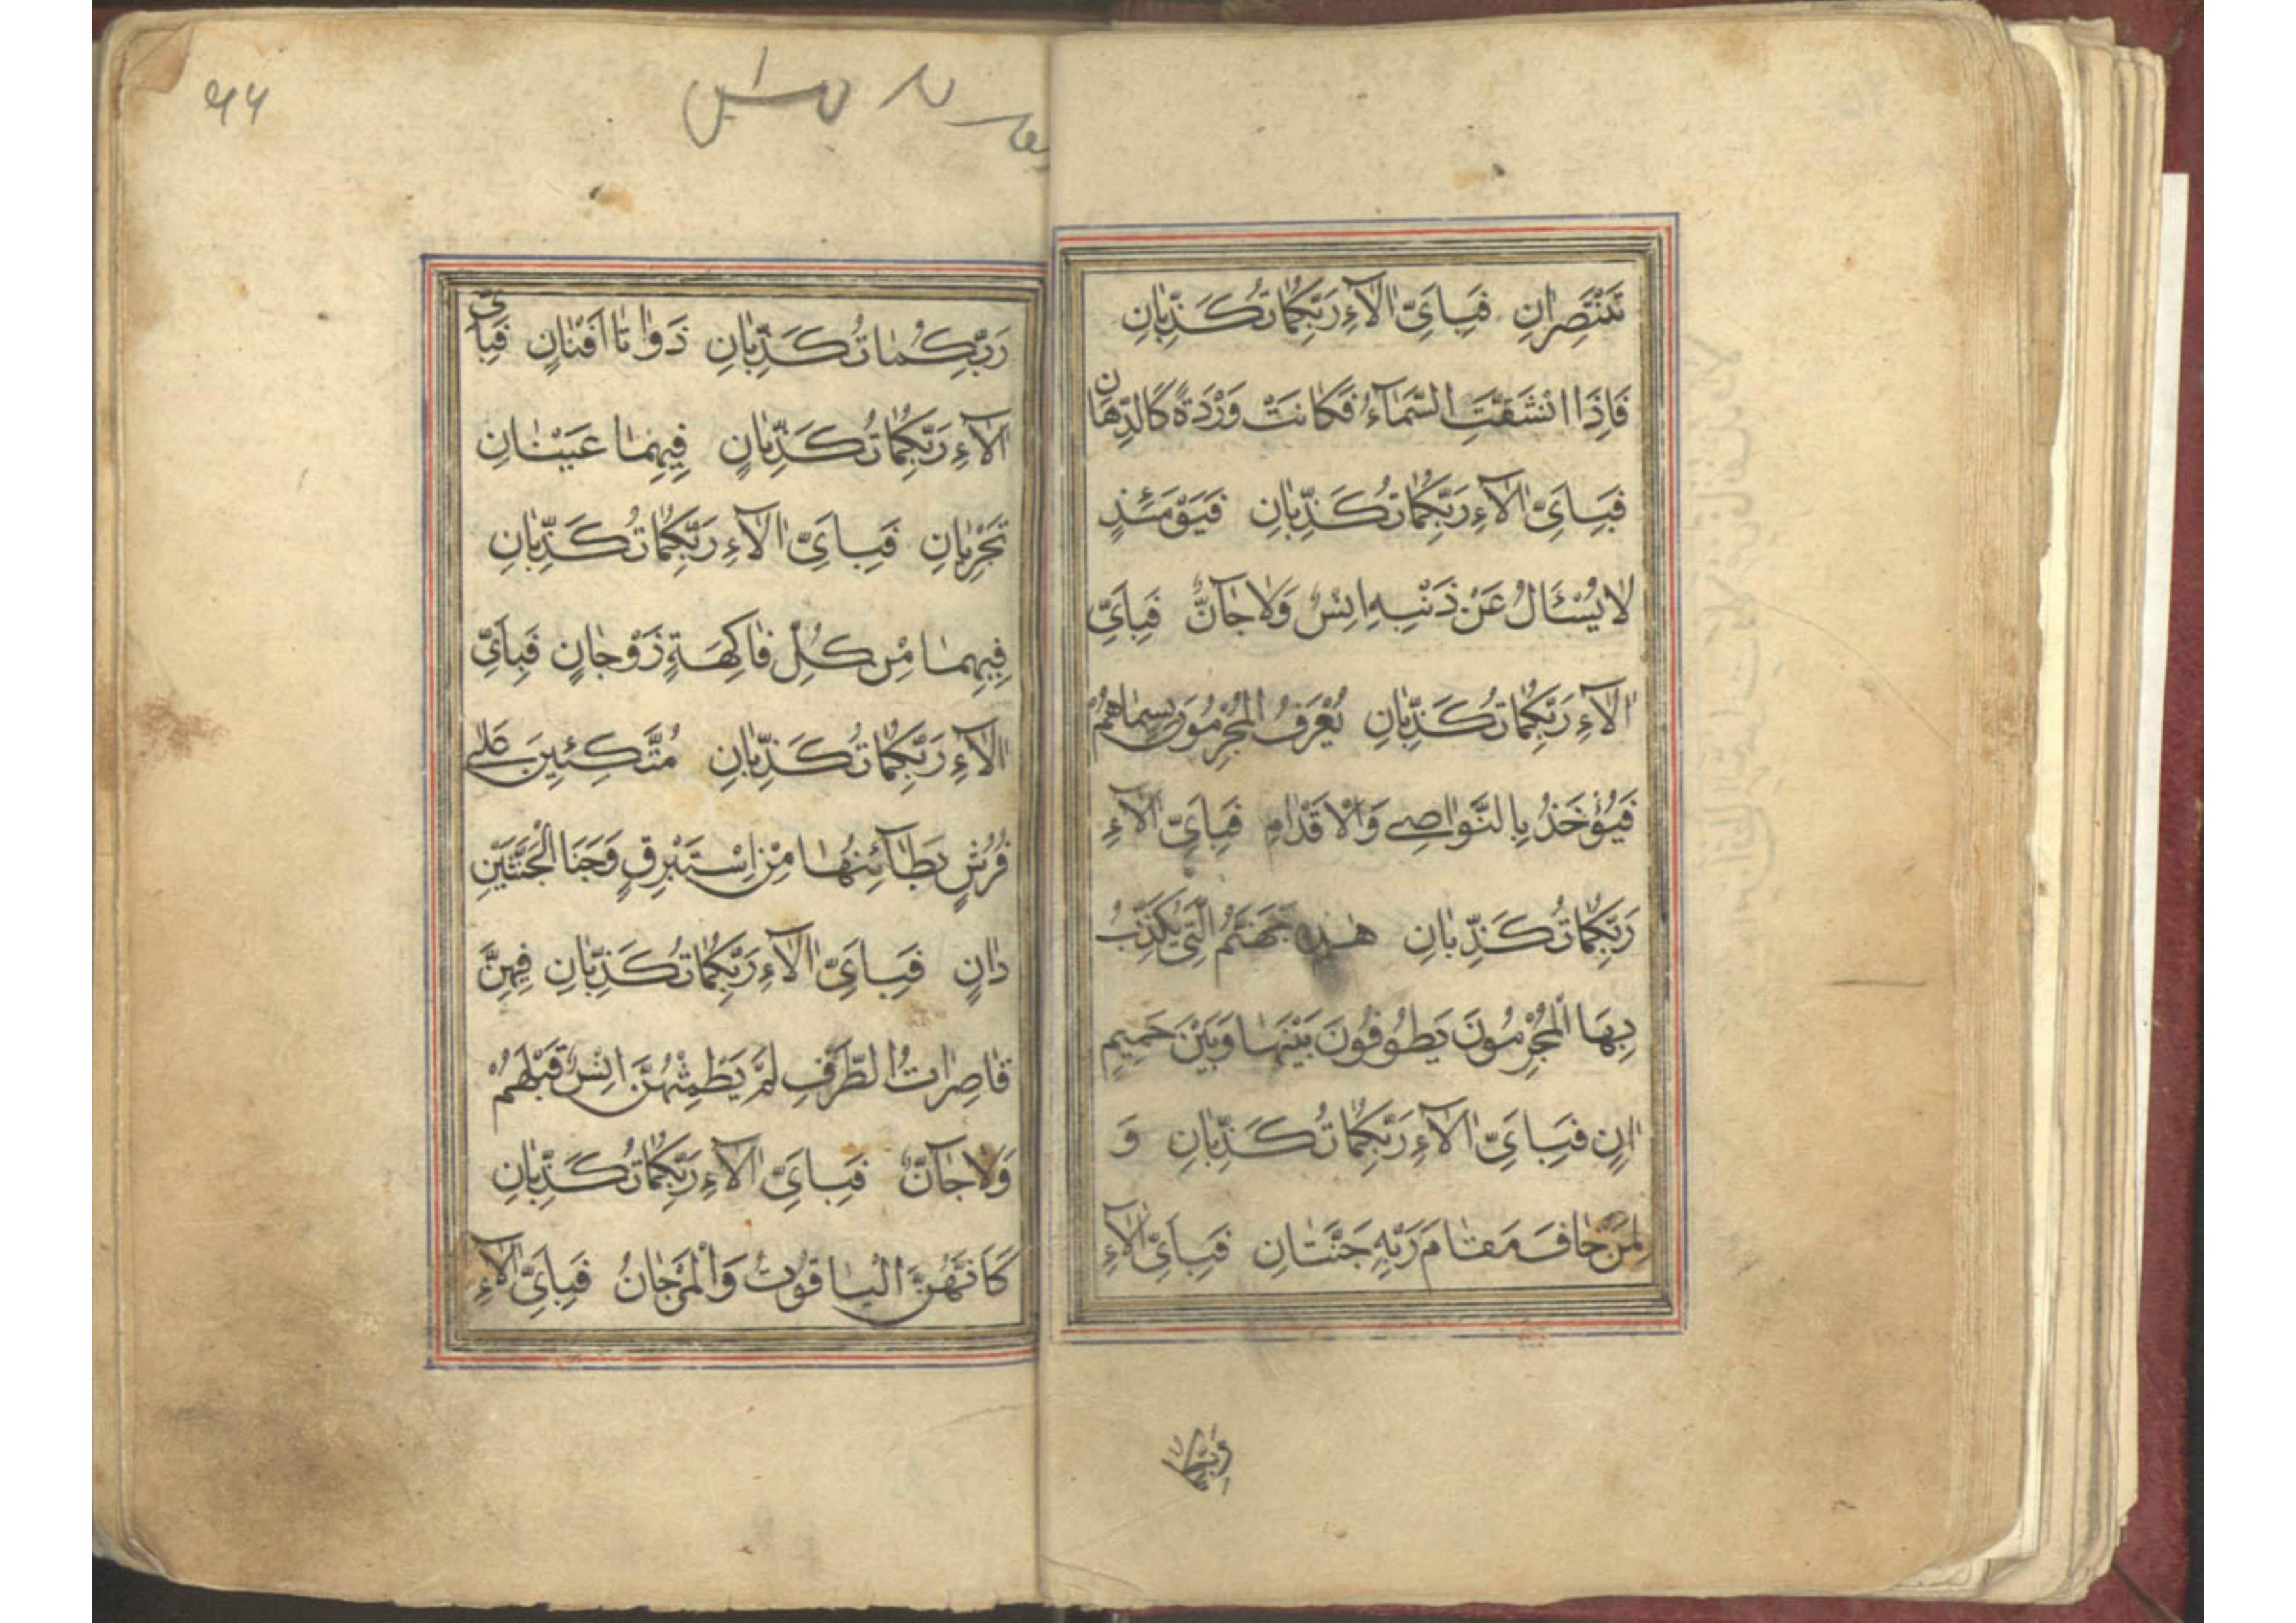 تَنْتَصِرٰانِ فَبِاَىِّ اٰلآءِ رَبِّكُمٰا تُكَذِّبٰانِ
فَاِذَا انْشَقَّتِ السَّمٰآءُ فَكٰانَتْ وَرْدَةً كَالدِّهٰانِ
فَبِاَىِّ اٰلآءِ رَبِّكُمٰا تُكَذِّبٰانِ فَيَوْمَئِذٍ
لٰا يُسْئَالُ عَنْ ذَنْبِهِ اِنْسٌ وَلٰا جٰآنٌّ فَبِاَىِّ
اٰلآءِ رَبِّكُمٰا تُكَذِّبٰانِ يُعْرَفُ الْمُجْرِمُونَ بِسِيمٰاهُمْ
فَيُؤْخَذُ بِالنَّوٰاصِى وَالْاَقْدٰامِ فَبِاَىِّ اٰلآءِ
رَبِّكُمٰا تُكَذِّبٰانِ هٰذِهِ جَهَنَّمُ الَّتِى يُكَذِّبُ
بِهَا الْمُجْرِمُونَ يَطُوفُونَ بَيْنَهٰا وَبَيْنَ حَمِيمٍ
اٰنٍ فَبِاَىِّ اٰلآءِ رَبِّكُمٰا تُكَذِّبٰانِ وَ
لِمَنْ خٰافَ مَقٰامَ رَبِّهِ جَنَّتٰانِ فَبِاَىِّ اٰلآءِ
رَبِّكُمٰا
رَبِّكُمٰا تُكَذِّبٰانِ ذَوٰاتٰا اَفْنٰانٍ فَبِاَىِّ
اٰلآءِ رَبِّكُمٰا تُكَذِّبٰانِ فِيهِمٰا عَيْنٰانِ
تَجْرِيٰانِ فَبِاَىِّ اٰلآءِ رَبِّكُمٰا تُكَذِّبٰانِ
فِيهِمٰا مِنْ كُلِّ فٰاكِهَةٍ زَوْجٰانِ فَبِاَىِّ
اٰلآءِ رَبِّكُمٰا تُكَذِّبٰانِ مُتَّكِئِينَ عَلٰى
فُرُشٍ بَطٰآئِنُهٰا مِنْ اِسْتَبْرَقٍ وَجَنَا الْجَنَّتَيْنِ
دٰانٍ فَبِاَىِّ اٰلآءِ رَبِّكُمٰا تُكَذِّبٰانِ فِيهِنَّ
قٰاصِرٰاتُ الطَّرْفِ لَمْ يَطْمِثْهُنَّ اِنْسٌ قَبْلَهُمْ
وَلٰا جٰآنٌّ فَبِاَىِّ اٰلآءِ رَبِّكُمٰا تُكَذِّبٰانِ
كَاَنَّهُنَّ الْيٰاقُوتُ وَالْمَرْجٰانُ فَبِاَىِّ اٰلآءِ